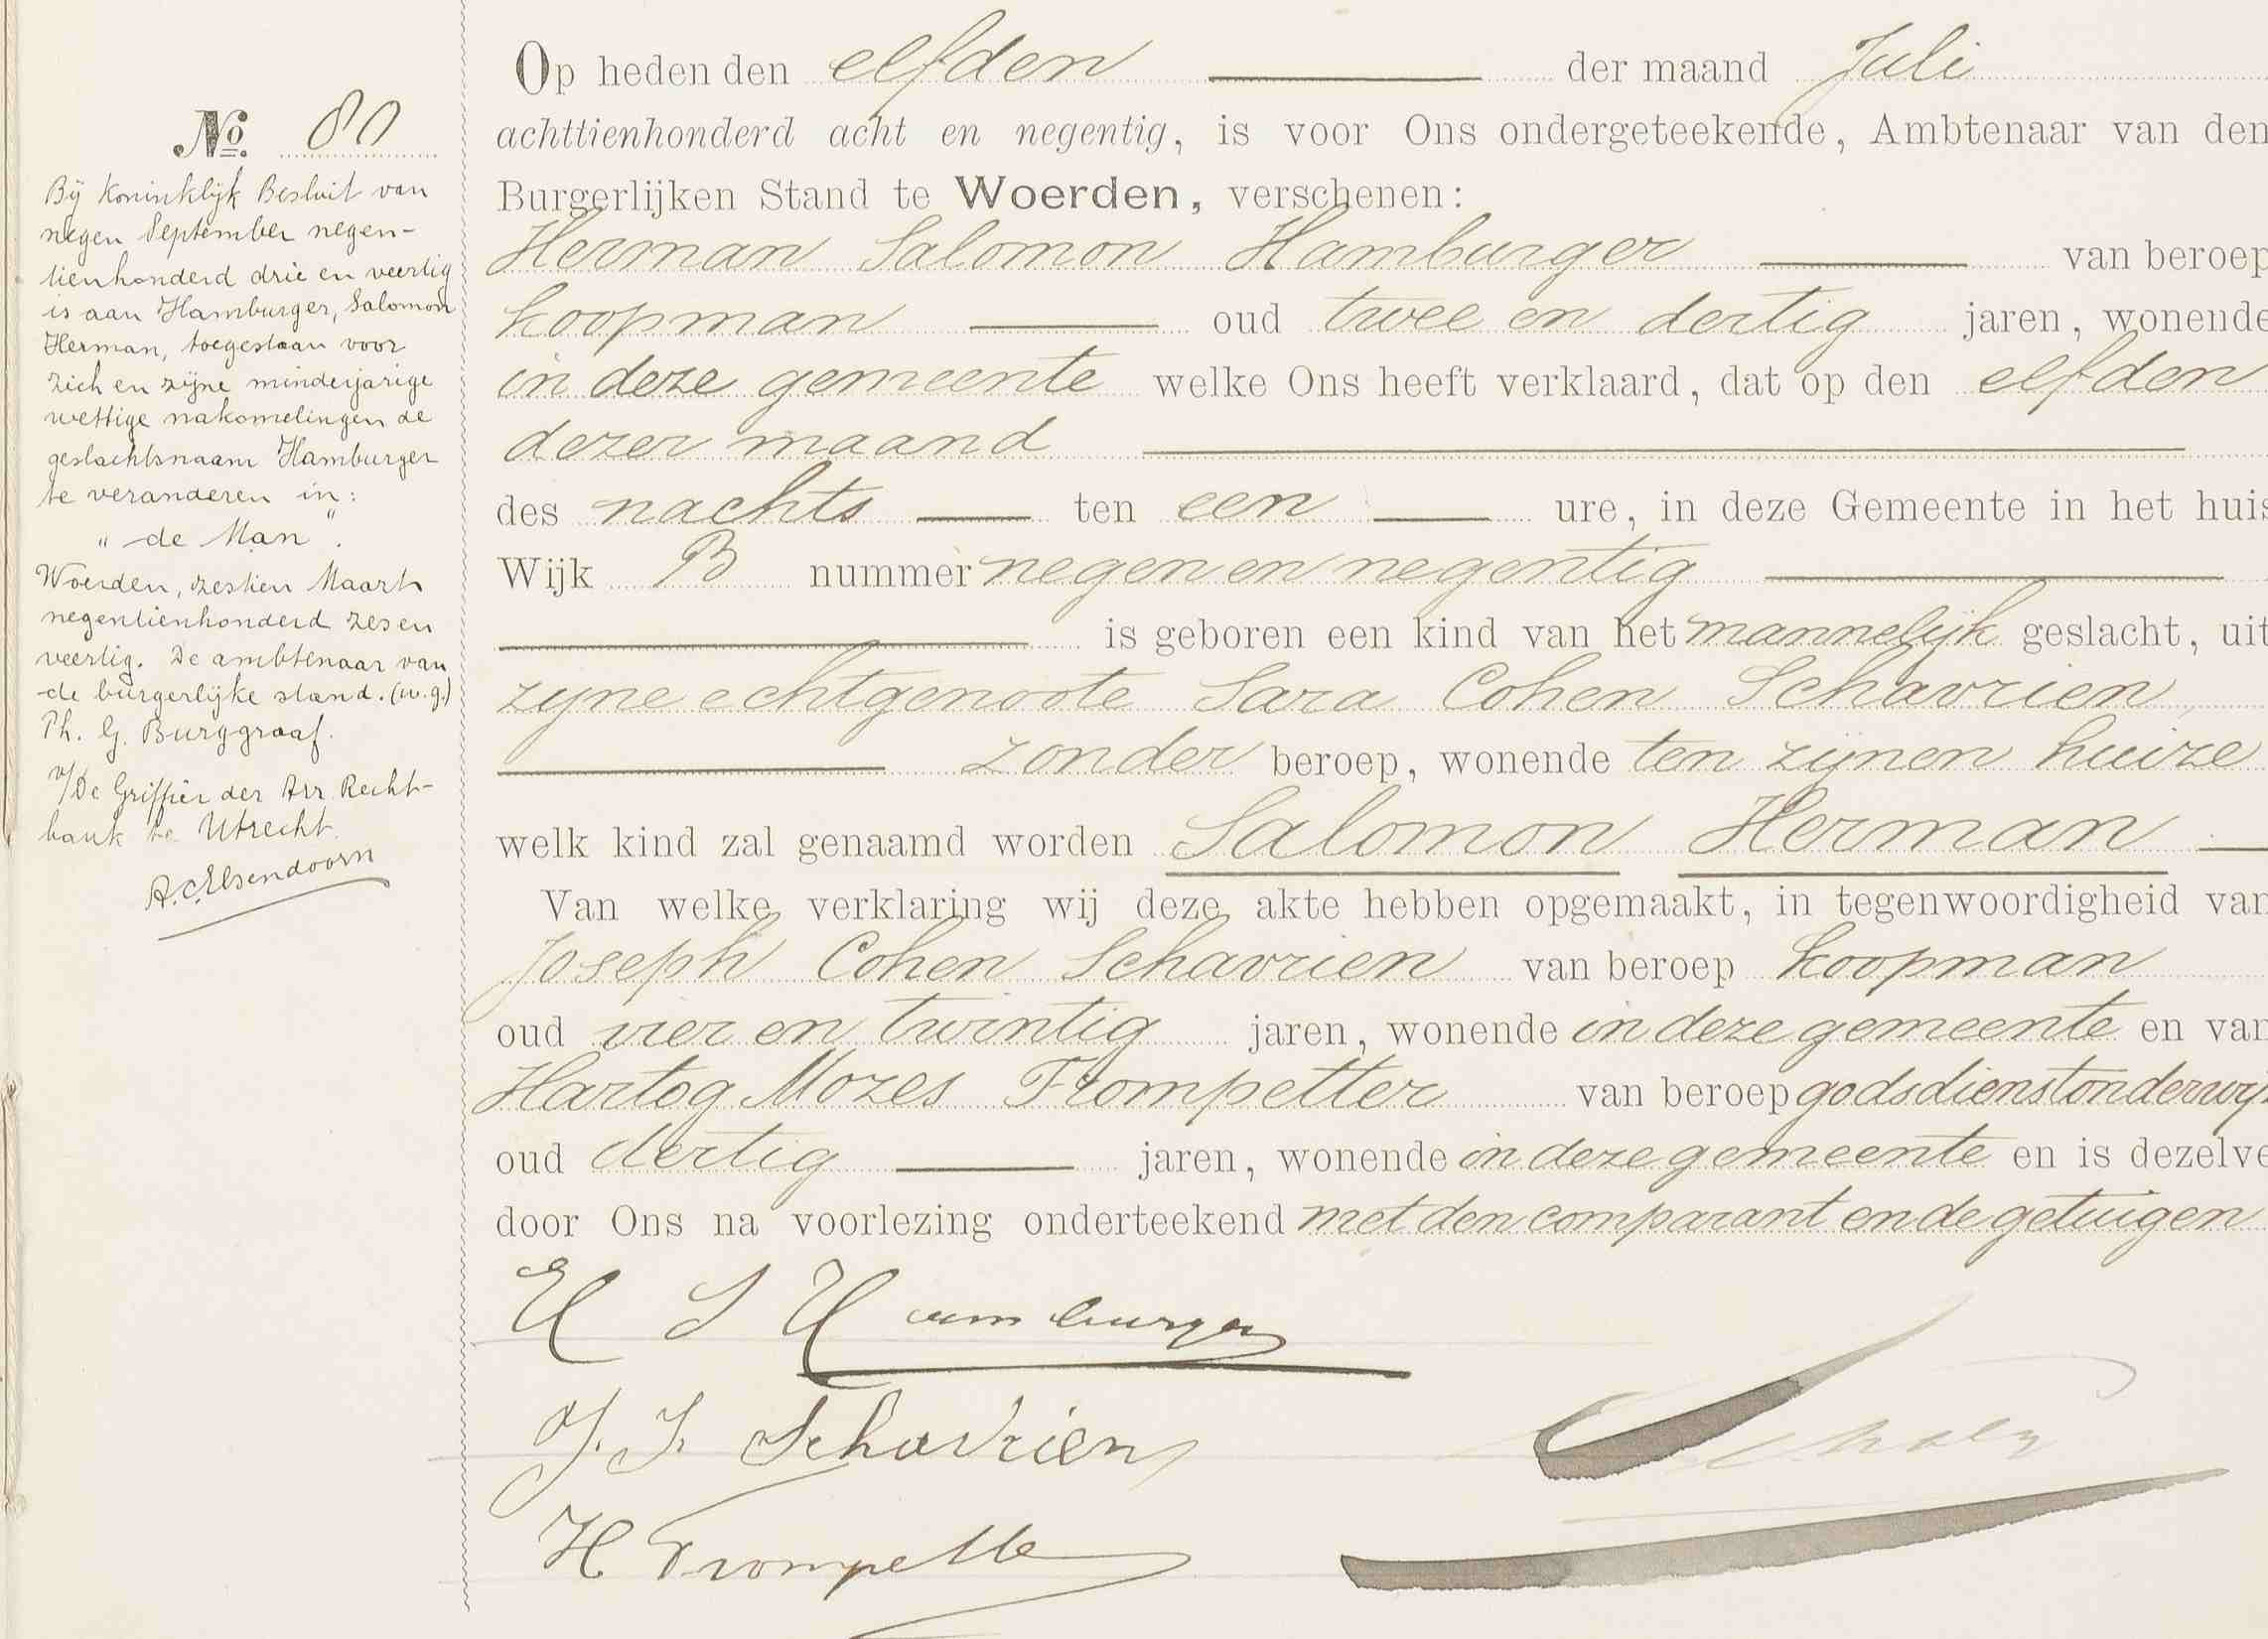 No. 80
Bij Koninklijk Besluit van
negen September negen-
tienhonderd drie en veertig
is aan Hamburger, Salomon
Herman, toegestaan voor
zich en zijne minderjarige
wettige nakomelingen de
geslachtsnaam Hamburger
te veranderen in:
"de Man".
Woerden, zestien Maart
negentienhonderd zes en
veertig. De ambtenaar van
de burgerlijke stand. (w.g.)
Ph. G. Burggraaf.
v/De Griffier der Arr. Recht-
bank te Utrecht.
A.C. Elsendoorn
Op heden den elfden der maand Juli
achttienhonderd acht en negentig, is voor Ons ondergeteekende, Ambtenaar van den
Burgerlijken Stand te Woerden, verschenen:
Herman Salomon Hamburger van beroep
koopman oud twee en dertig jaren, wonende
in deze gemeente welke Ons heeft verklaard, dat op den elfden
dezer maand
des nachts ten een ure, in deze Gemeente in het huis
Wijk B nummer negen en negentig
is geboren een kind van het mannelijk geslacht, uit
zijne echtgenoote Sara Cohen Schavrien,
zonder beroep, wonende ten zijnen huize
welk kind zal genaamd worden Salomon Herman
Van welke verklaring wij deze akte hebben opgemaakt, in tegenwoordigheid van
Joseph Cohen Schavrien van beroep koopman
oud vier en twintig jaren, wonende in deze gemeente en van
Hartog Mozes Trompetter van beroep godsdienstonderwij
oud dertig jaren, wonende in deze gemeente en is dezelve
door Ons na voorlezing onderteekend met den comparant en de getuigen
H S Hamburger
J. I. Schavrien
H Trompetter